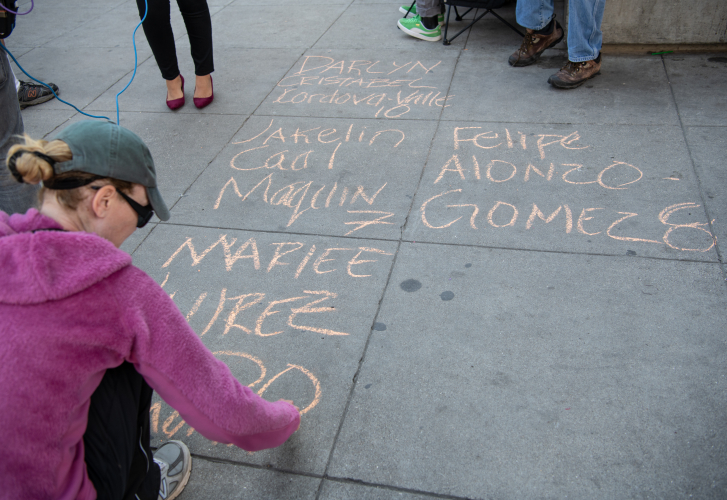 DARLYN
CORDOVA-Valle
10
JAkelin
CAAl
MAquin
7
Felipe
ALONZO-
GOMEZ 8
MARIEE